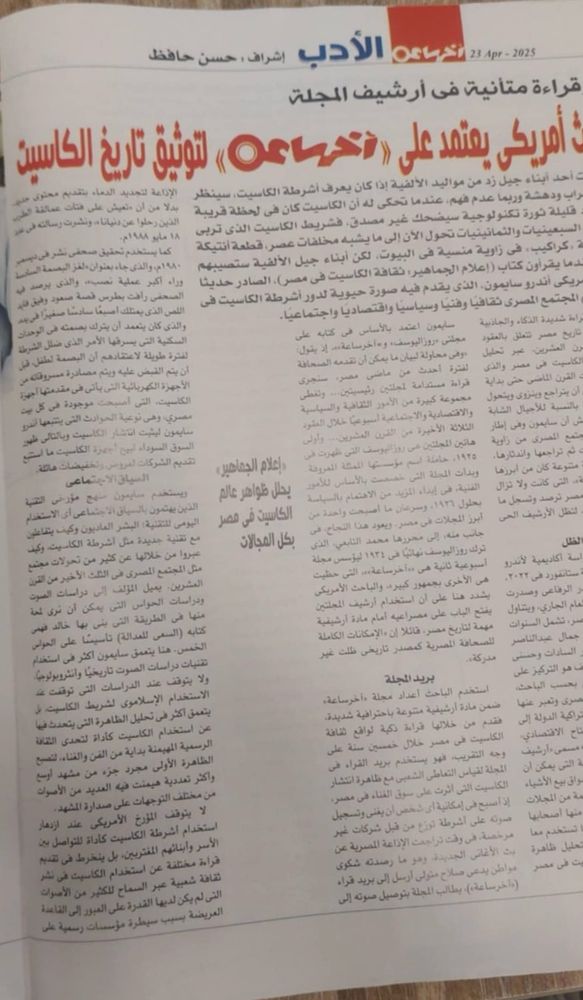 23 Apr - 2025
آخرساعة
الأدب
إشراف: حسن حافظ
قراءة متأنية فى أرشيف المجلة
أمريكى يعتمد على «آخرساعة» لتوثيق تاريخ الكاسيت
أحد أبناء جيل زد من مواليد الألفية إذا كان يعرف أشرطة الكاسيت، سينظر
ودهشة وربما عدم فهم، عندما تحكى له أن الكاسيت كان فى لحظة قريبة
ثورة تكنولوجية سيضحك غير مصدق، فشريط الكاسيت الذى تربى
السبعينيات والثمانينيات تحول الآن إلى ما يشبه مخلفات عصر، قطعة أنتيكة
كراكيب، فى زاوية منسية فى البيوت. لكن أبناء جيل الألفية ستصيبهم
يقرأون كتاب (إعلام الجماهير: ثقافة الكاسيت فى مصر)، الصادر حديثا
أندرو سايمون، الذى يقدم فيه صورة حيوية لدور أشرطة الكاسيت فى
المجتمع المصرى ثقافيًا وفنيًا وسياسيًا واقتصاديًا واجتماعيًا.
قراءة شديدة الذكاء والجاذبية
تاريخ مصر تتعلق بالعقود
القرن العشرين، عبر تحليل
الكاسيت فى مصر والذى
القرن الماضى حتى بداية
أن يتراجع وينزوى ويتحول
بالنسبة للأجيال الشابة
أن سايمون وهى إطار
المجتمع المصرى من زاوية
ثم تراجعها واندثارها،
متنوعة كان من أبرزها
التى كانت ولا تزال
مصر ترصد وتسجل ما
لتظل الأرشيف الحى
الظل
أكاديمية لأندرو
ستانفورد فى ٢٠٢٢،
الرفاعى وصدرت
العام الجارى، ويتناول
مصر، تشمل السنوات
جمال عبدالناصر
السادات وحسنى
هو التركيز على
بحسب الباحث،
وتعبر عنها
الدولة إلى
الاقتصادى.
مسمى «أرشيف
التى يمكن أن
الأشياء
من المجلات
أصحابها
تستخدم معا
تحليل ظاهرة
فى مصر
سايمون اعتمد بالأساس فى كتابه على
مجلتى «روزاليوسف» و«آخرساعة»، إذ يقول:
«وفى محاولة لبيان ما يمكن أن تقدمه الصحافة
لفترة أحدث من ماضى مصر، سنجرى
قراءة مستدامة لمجلتين رئيسيتين... وتغطى
مجموعة كبيرة من الأمور الثقافية والسياسية
والاقتصادية والاجتماعية أسبوعيًا خلال العقود
الثلاثة الأخيرة من القرن العشرين... وأولى
هاتين المجلتين هى روزاليوسف التى ظهرت فى
١٩٢٥، حاملة اسم مؤسستها الممثلة المعروفة
وبدأت المجلة التى خصصت بالأساس للأمور
الفنية، فى إبداء المزيد من الاهتمام بالسياسة
بحلول ١٩٢٦، وسرعان ما أصبحت واحدة من
أبرز المجلات فى مصر. ويعود هذا النجاح، فى
جانب منه، إلى محررها محمد التابعى، الذى
ترك روزاليوسف نهائيًا فى ١٩٣٤ ليؤسس مجلة
أسبوعية ثانية هى «آخرساعة»»، التى حظيت
هى الأخرى بجمهور كبير»، والباحث الأمريكى
يشدد هنا على أن استخدام أرشيف المجلتين
يفتح الباب على مصراعيه أمام مادة أرشيفية
مهمة لتاريخ مصر، قائلاً إن «الإمكانات الكاملة
للصحافة المصرية كمصدر تاريخى ظلت غير
مدركة».
بريد المجلة
استخدم الباحث أعداد مجلة «آخرساعة»
ضمن مادة أرشيفية متنوعة باحترافية شديدة،
فقدم من خلالها قراءة ذكية لواقع ثقافة
الكاسيت فى مصر خلال خمسين سنة على
وجه التقريب، فهو يستخدم بريد القراء فى
المجلة لقياس التعاطى الشعبى مع ظاهرة انتشار
الكاسيت التى أثرت على سوق الغناء فى مصر،
إذ أصبح فى إمكانية أى شخص أن يغنى وتسجيل
صوته على أشرطة توزع من قبل شركات غير
مرخصة، فى وقت تراجعت الإذاعة المصرية عن
بث الأغانى الجديدة، وهو ما رصدته شكوى
مواطن يدعى صلاح متولى أرسل إلى بريد قراء
(«آخرساعة»)، يطالب المجلة بتوصيل صوته إلى
«إعلام الجماهير»
يحلل ظواهر عالم
الكاسيت فى مصر
بكل المجالات
الإذاعة لتجديد الدماء بتقديم محتوى جديد
بدلا من أن «تعيش على فتات عمالقة الطرب
الذين رحلوا عن دنيانا»، ونشرت رسالته فى عدد
١٨ مايو ١٩٨٨م.
كما يستخدم تحقيق صحفى نشر فى ديسمبر
١٩٨٠م، والذى جاء بعنوان «لغز البصمة السادسة
وراء أكبر عملية نصب»، والذى يرصد فيه
الصحفى رأفت بطرس قصة صعود وفيق فايد
اللص الذى يمتلك أصبعًا سادسًا صغيرًا فى يده
والذى كان يتعمد أن يترك بصمته فى الوحدات
السكنية التى يسرقها الأمر الذى ضلل الشرطة
لفترة طويلة لاعتقادهم أن البصمة لطفل، قبل
أن يتم القبض عليه ويتم مصادرة مسروقاته من
الأجهزة الكهربائية التى يأتى فى مقدمتها أجهزة
الكاسيت، التى أصبحت موجودة فى كل بيت
مصرى، وهى نوعية الحوادث التى يتتبعها أندرو
سايمون ليثبت انتشار الكاسيت وبالتالى ظهور
السوق السوداء لبيع أجهزة الكاسيت ما استتبع
تقديم الشركات لعروض وتخفيضات هائلة.
السياق الاجتماعى
ويستخدم سايمون منهج مؤرخى التقنية
الذين يهتمون بالسياق الاجتماعى أى الاستخدام
اليومى للتقنية: البشر العاديون وكيف يتفاعلون
مع تقنية جديدة مثل أشرطة الكاسيت، وكيف
عبروا من خلالها عن كثير من تحولات مجتمع
مثل المجتمع المصرى فى الثلث الأخير من القرن
العشرين. يميل المؤلف إلى دراسات الصوت
ودراسات الحواس التى يمكن أن نرى لمحة
منها فى الطريقة التى بنى بها خالد فهمى
كتابه (السعى للعدالة) تأسيسًا على الحواس
الخمس. هنا يتعمق سايمون أكثر فى استخدام
تقنيات دراسات الصوت تاريخيًا وأنثروبولوجيًا،
ولا يتوقف عند الدراسات التى توقفت عند
الاستخدام الإسلاموى لشريط الكاسيت، بل
يتعمق أكثر فى تحليل الظاهرة التى يتحدث فيها
عن استخدام الكاسيت كأداة لتحدى الثقافة
الرسمية المهيمنة بداية من الفن والغناء، لتصبح
الظاهرة الأولى مجرد جزء من مشهد أوسع
وأكثر تعددية هيمنت فيه العديد من الأصوات
من مختلف التوجهات على صدارة المشهد.
لا يتوقف المؤرخ الأمريكى عند ازدهار
استخدام أشرطة الكاسيت كأداة للتواصل بين
الأسر وأبنائهم المغتربين، بل ينخرط فى تقديم
قراءة مختلفة عن استخدام الكاسيت فى نشر
ثقافة شعبية عبر السماح للكثير من الأصوات
التى لم يكن لديها القدرة على العبور إلى القاعدة
العريضة بسبب سيطرة مؤسسات رسمية على